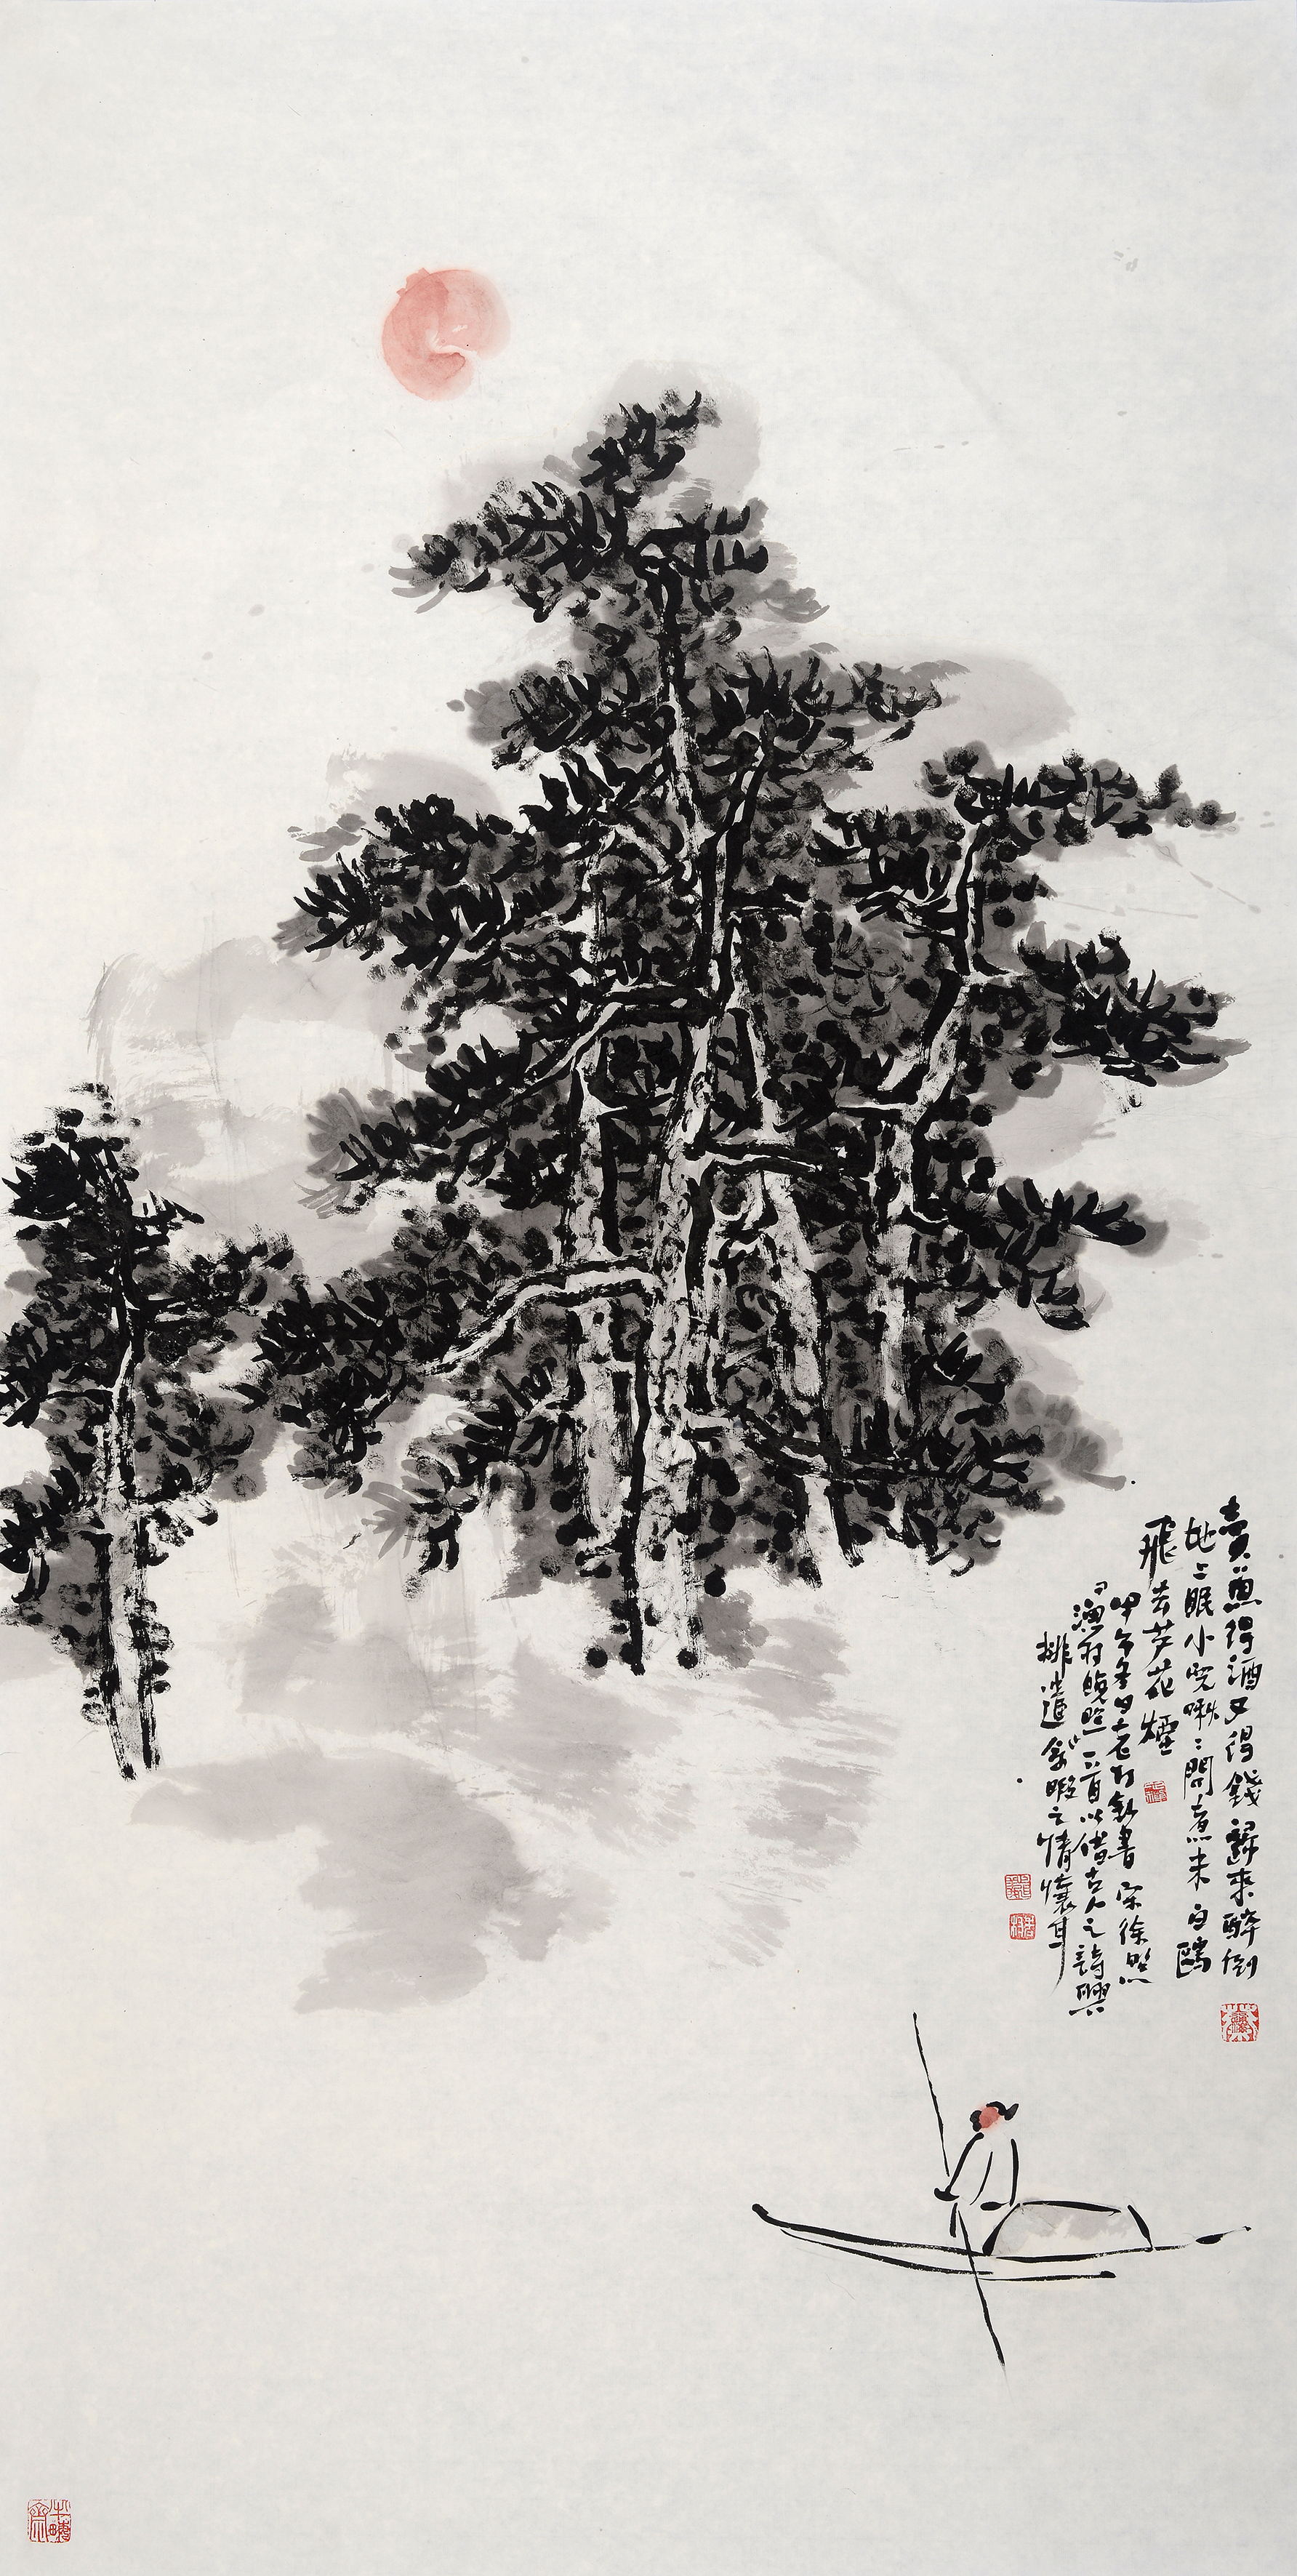 賣魚得酒又得錢歸來醉倒
地上眠小兒啾啾問煮米白鷗
飛去芦花煙
甲午冬日老書宋徐照
漁村晚照一首以借古人之詩興
排遣余暇之情懷耳